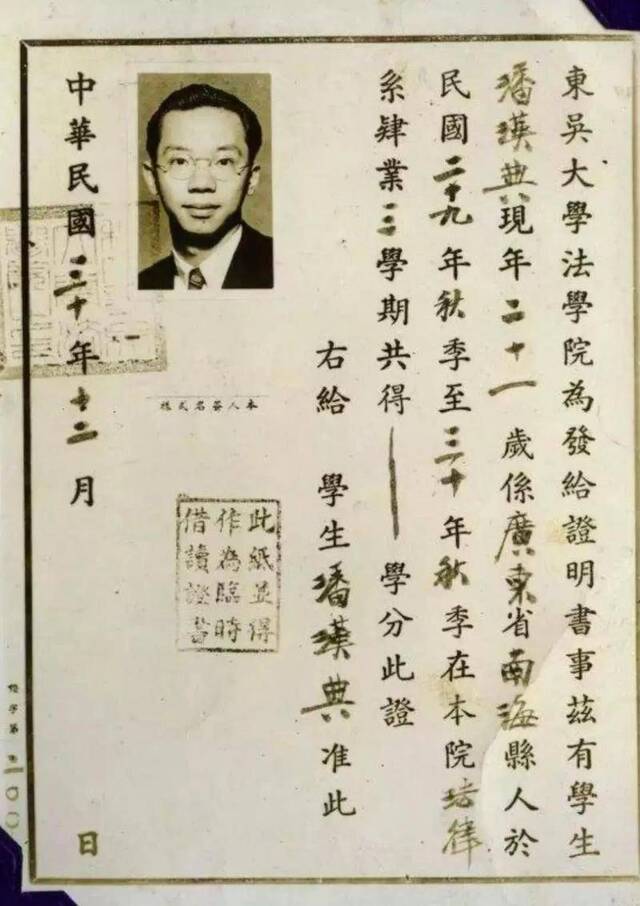 東吳大學法學院為發給證明書事茲有學生
潘漢典現年二十一歲係廣東省南海縣人於
民國二十九年秋季至三十年秋季在本院法律
系肄業三學期共得——學分此證
右給 學生潘漢典准此
本人簽名式樣
此紙並得
作為臨時
借讀證書
中華民國三十年十二月 日